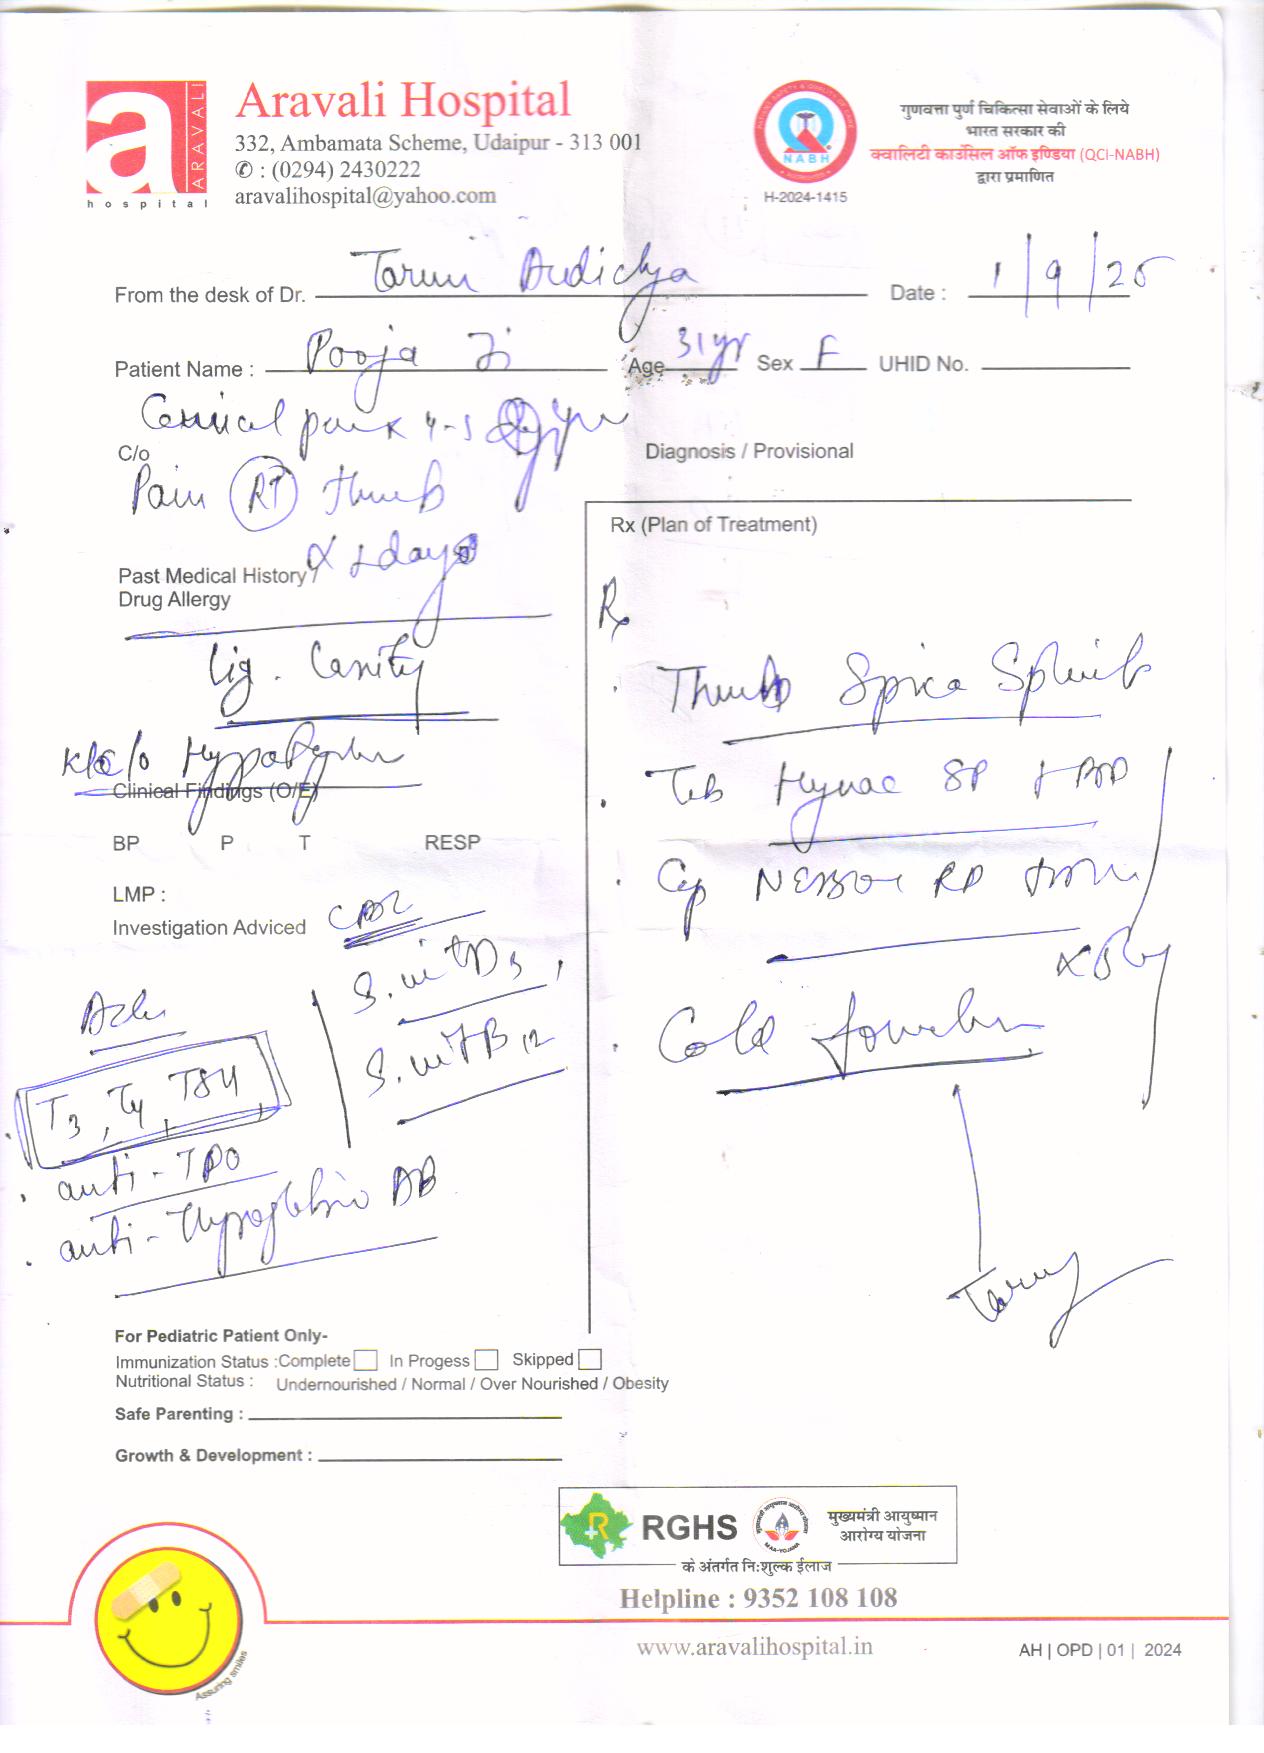 a ARAVALI
hospital
Aravali Hospital
332, Ambamata Scheme, Udaipur - 313 001
✆ : (0294) 2430222
aravalihospital@yahoo.com
NABH
H-2024-1415
गुणवत्ता पुर्ण चिकित्सा सेवाओं के लिये
भारत सरकार की
क्वालिटि काउंसिल ऑफ इण्डिया (QCI-NABH)
द्वारा प्रमाणित
From the desk of Dr. Tarun Audichya Date : 1/9/25
Patient Name : Pooja Ji Age 31yr Sex F UHID No.
Cervical pain x 4-5
C/o
Pain RT thumb
Diagnosis / Provisional
Rx (Plan of Treatment)
days
Past Medical History /
Drug Allergy
Lig.
K/c/o
Clinical Findings (O/E)
BP P T RESP
LMP :
Investigation Adviced
S. vit D3,
S. vit B12
T3, T4, TSH
anti-TPO
anti-
AB
Rx
Thumb Spica Splint
Tab SP
Cap RD
Cold
For Pediatric Patient Only-
Immunization Status :Complete In Progess Skipped
Nutritional Status : Undernourished / Normal / Over Nourished / Obesity
Safe Parenting :
Growth & Development :
RGHS
मुख्यमंत्री आयुष्मान
आरोग्य योजना
के अंतर्गत निःशुल्क ईलाज
Helpline : 9352 108 108
Assuring smiles
www.aravalihospital.in
AH | OPD | 01 | 2024